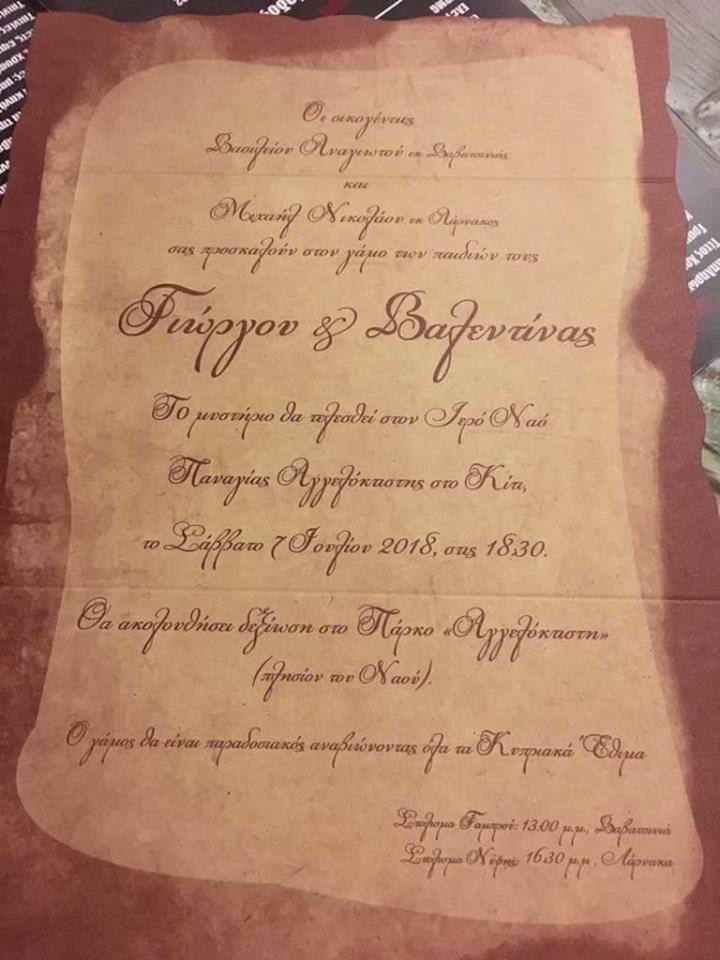 Οι οικογένειες
Βασιλείου Αναγιωτού εκ Βαβατσινιάς
και
Μιχαήλ Νικολάου εκ Λάρνακος
σας προσκαλούν στον γάμο των παιδιών τους
Γιώργου & Βαλεντίνας
Το μυστήριο θα τελεσθεί στον Ιερό Ναό
Παναγίας Αγγελόκτιστης στο Κίτι,
το Σάββατο 7 Ιουλίου 2018, στις 18:30.
Θα ακολουθήσει δεξίωση στο Πάρκο «Αγγελόκτιστη»
(πλησίον του Ναού).
Ο γάμος θα είναι παραδοσιακός αναβιώνοντας όλα τα Κυπριακά Έθιμα
Στόλισμα Γαμπρού: 13:00 μ.μ., Βαβατσινιά
Στόλισμα Νύφης: 16:30 μ.μ., Λάρνακα